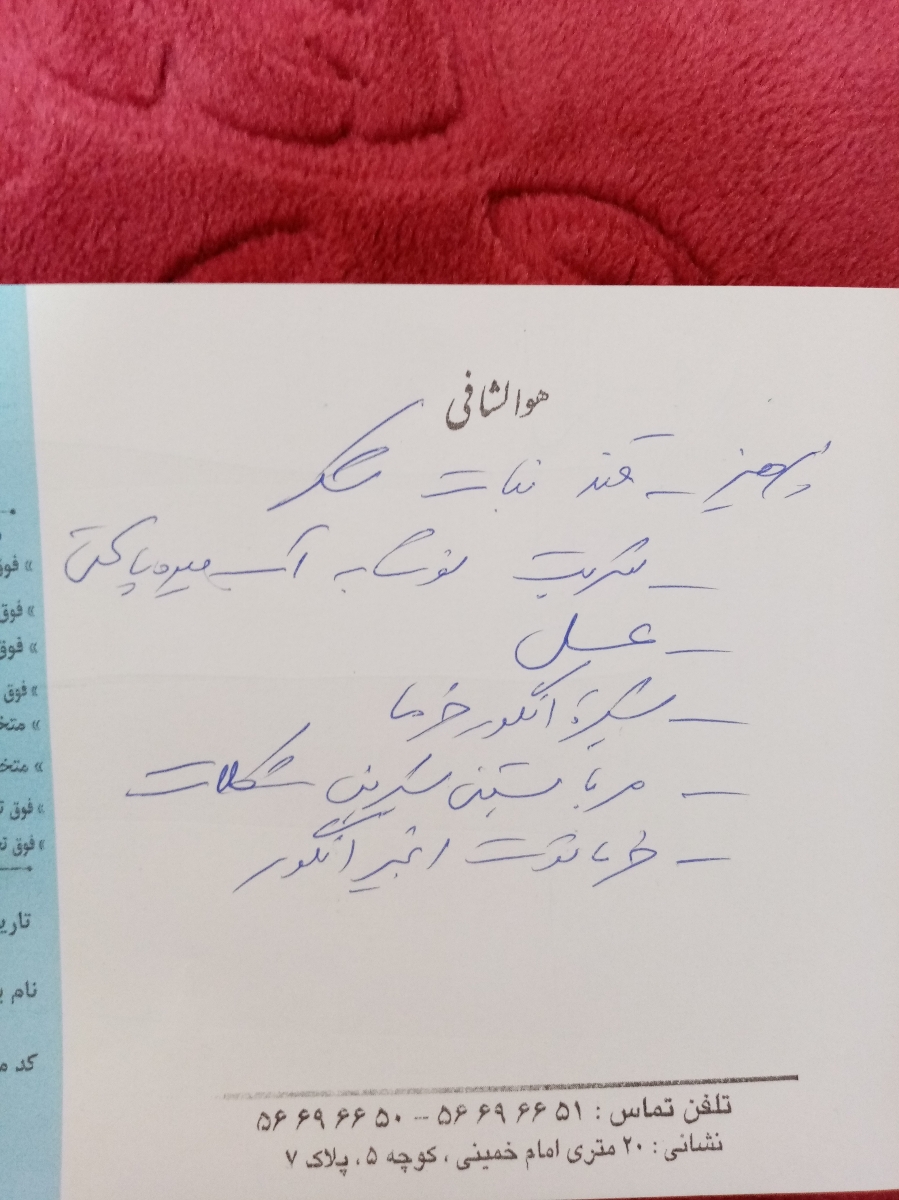 هوالشافی
پرهیز – قند نبات شکر
– شربت نوشابه آب میوه پاکتی
– عسل
– شیره انگور خرما
– مربا بستنی شیرینی شکلات
– خرما توت انجیر انگور
» فوق
» فوق
» فوق
» فوق
» متخ
» متخ
» فوق ت
» فوق تع
تاری
نام
کد م
تلفن تماس : ۵۱ ۶۶ ۶۹ ۵۶ – ۵۰ ۶۶ ۶۹ ۵۶
نشانی : ۲۰ متری امام خمینی ، کوچه ۵ ، پلاک ۷